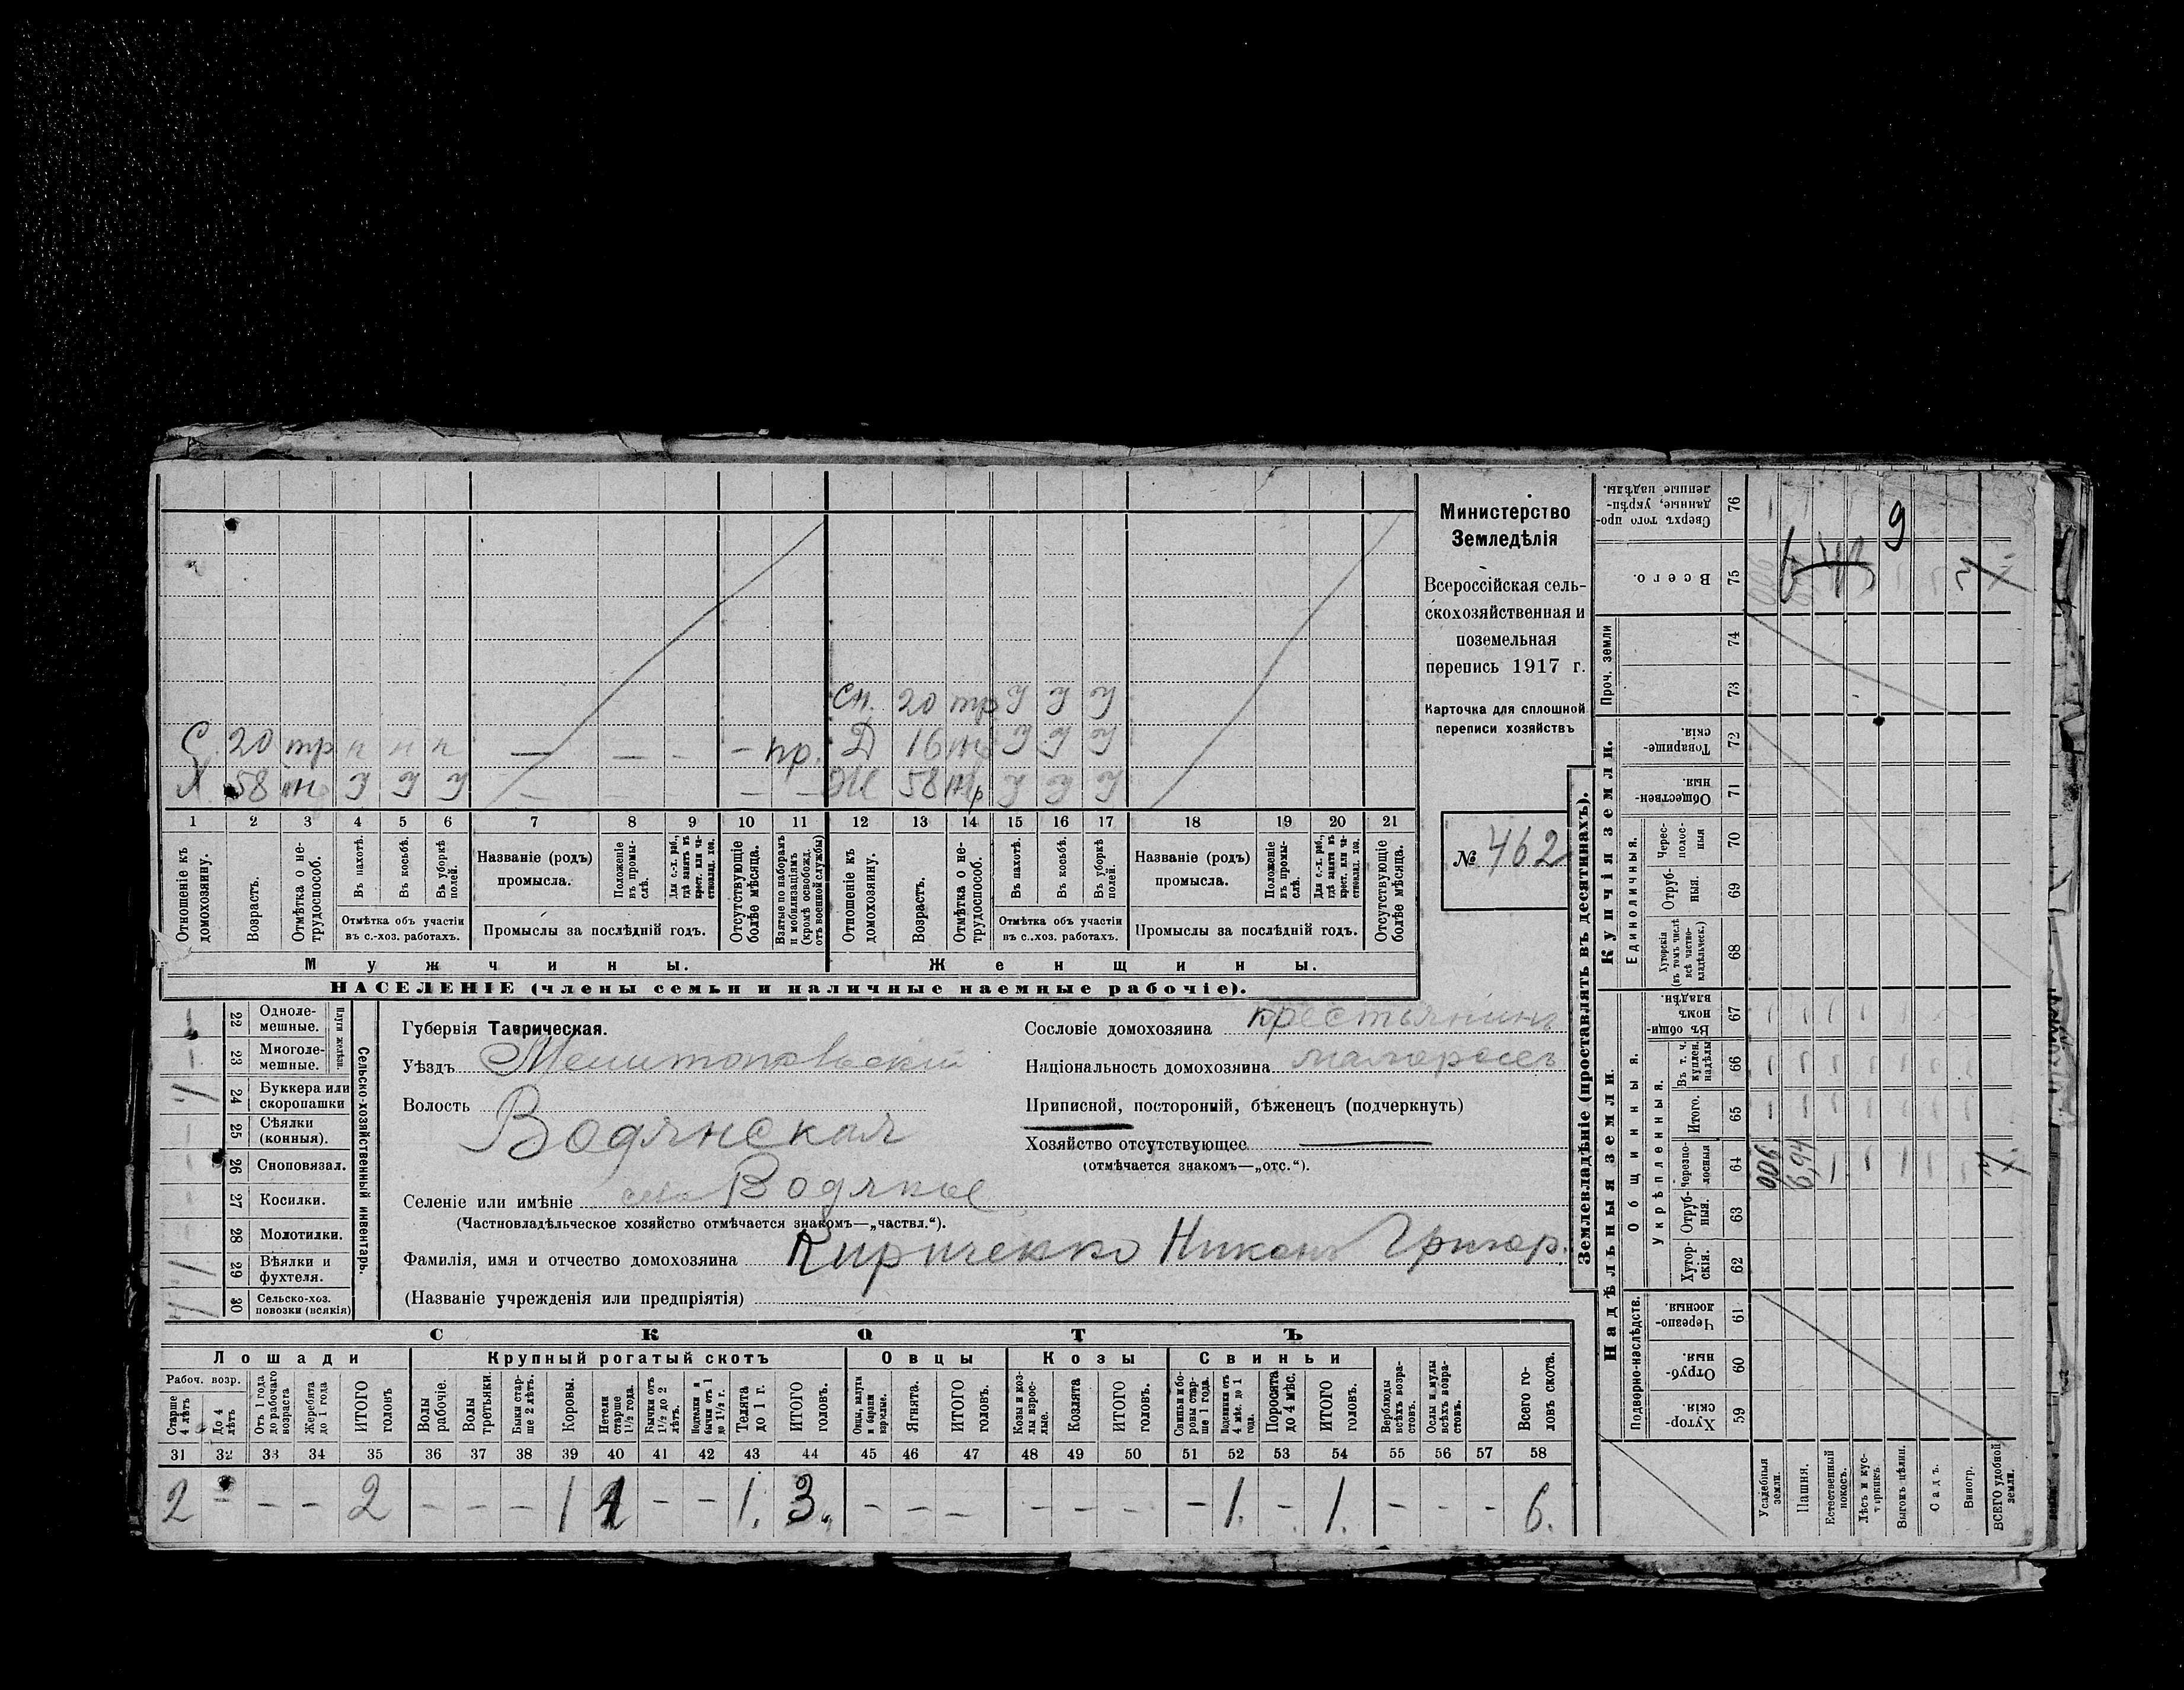 Министерство
Земледѣлія
Всероссійская сель-
скохозяйственная и
поземельная
перепись 1917 г.
Карточка для сплошной
переписи хозяйствъ
№ 462
Сн. 20 тр У У У
С. 20 тр н н н — — - - пр. Д 16 У У У
Х 58 У У У — — — — Ж 58 У У У
1 2 3 4 5 6 7 8 9 10 11 12 13 14 15 16 17 18 19 20 21
Отношеніе къ домохозяину.
Возрастъ.
Отмѣтка о не-трудоспособ.
Въ пахотѣ.
Въ косьбѣ.
Въ уборкѣ полей.
Отмѣтка объ участіи въ с.-хоз. работахъ.
Названіе (родъ) промысла.
Положеніе въ промы-слѣ.
Для с.-х. раб., гдѣ занятъ въ крест. или ча-стновлад. хоз.
Промыслы за послѣдній годъ.
Отсутствующіе болѣе мѣсяца.
Взятые по наборамъ и мобилизаціямъ (кромѣ освобожд. отъ военной службы)
Отношеніе къ домохозяину.
Возрастъ.
Отмѣтка о не-трудоспособ.
Въ пахотѣ.
Въ косьбѣ.
Въ уборкѣ полей.
Отмѣтка объ участіи въ с..хоз. работахъ.
Названіе (родъ) промысла.
Положеніе въ промы-слѣ.
Для с.-х. раб., гдѣ заняты въ крест. или ча-стновлад. хоз.
Промыслы за послѣдній годъ.
Отсутствующіе болѣе мѣсяца.
Мужчины. Женщины.
НАСЕЛЕНІЕ (члены семьи и наличные наемные рабочіе).
Сельско-хозяйственный инвентарь.
Плуги желѣзн.
22 Однолe-мешные.
23 Многолe-мешные.
24 Буккера или скоропашки
25 Сѣялки (конныя).
26 Сноповязал.
27 Косилки.
28 Молотилки.
29 Вѣялки и фухтеля.
30 Сельско-хоз. повозки (всякія)
Губернія Таврическая.
Уѣздъ Мелитопольскій
Волость Водянская
Селеніе или имѣніе село Водяное
(Частновладѣльческое хозяйство отмѣчается знакомъ—„частвл.“).
Фамилія, имя и отчество домохозяина Кириченко Никонъ Григор.
(Названіе учрежденія или предпріятія)
Сословіе домохозяина крестьянинъ
Національность домохозяина малороссъ
Приписной, посторонній, бѣженецъ (подчеркнуть)
Хозяйство отсутствующее —
(отмѣчается знакомъ—„отс.“).
СКОТЪ
Лошади Крупный рогатый скотъ Овцы Козы Свиньи
Рабоч. возр.
Старше 4 лѣтъ
До 4 лѣтъ
Отъ 1 года до рабочаго возраста
Жеребята до 1 года
ИТОГО головъ
Волы рабочіе.
Волы третьяки.
Быки стар-ше 2 лѣтъ.
Коровы.
Нетели старше 1½ года.
Бычки отъ 1½ до 2 лѣтъ.
Подтелки и бычки отъ 1 до 1½ г.
Телята до 1 г.
ИТОГО головъ.
Овцы, валухи и бараны взрослые.
Ягнята.
ИТОГО головъ.
Козы и коз-лы взрос-лые.
Козлята
ИТОГО головъ.
Свиньи и бо-ровы стар-ше 1 года.
Подсвинки отъ 4 мѣс. до 1 года.
Поросята до 4 мѣс.
ИТОГО головъ.
Верблюды всѣхъ возра-стовъ.
Ослы и мулы всѣхъ возра-стовъ.
Всего го-ловъ скота.
31 32 33 34 35 36 37 38 39 40 41 42 43 44 45 46 47 48 49 50 51 52 53 54 55 56 57 58
2 - - - 2 - - - 1 1 - - 1. 3. - - - - - - - 1. - 1. - - - 6.
Землевладѣніе (проставлять въ десятинахъ).
Надѣльныя земли.
Подворно-наслѣдств.
Хутор-скія. 59
Отруб-ныя. 60
Черезпо-лосныя. 61
Общинныя.
Укрѣпленныя.
Хутор-скія. 62
Отруб-ныя. 63
Черезпо-лосныя 64
Итого. 65
Въ т. ч. куплен. надѣлы 66
Въ общи-номъ владѣн. 67
Купчія земли.
Единоличныя.
Хуторскія (въ томъ числѣ всѣ частно-владѣльческ.) 68
Отруб-ныя. 69
Черес-полос-ныя 70
Обществен-ныя. 71
Товарище-скія. 72
Проч. земли
73
74
Всего. 75
Сверхъ того про-данные, укрѣп-ленные надѣлы. 76
Усадебныя земли.
Пашня.
Естественный покосъ.
Лѣсъ и кус-тарникъ.
Выгонъ цѣлин.
Садъ.
Виногр.
ВСЕГО удобной земли.
006 6,94
9